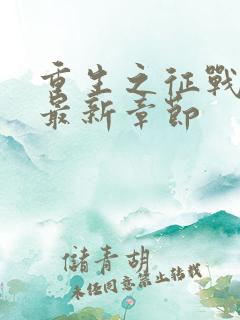 重生之征戰
最新章節
儲青胡
未經同意禁止轉載